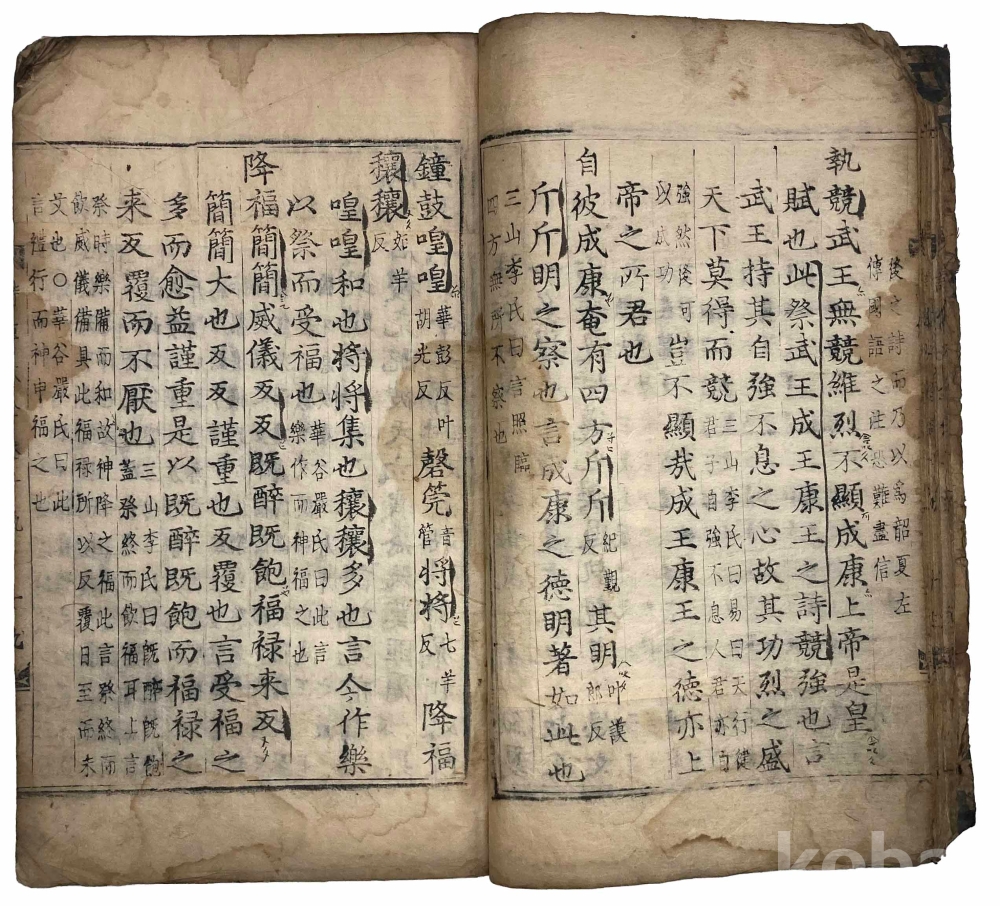 後之詩而乃以為韶夏左
傳國語之注恐難盡信
執競武王無競維烈不顯成康上帝是皇
賦也此祭武王成王康王之詩競強也言
武王持其自強不息之心故其功烈之盛
天下莫得而競三山李氏曰易曰天行健
君子自強不息人君亦自
強然後可
以成功
豈不顯哉成王康王之德亦上
帝之所君也
自彼成康奄有四方斤斤紀觀反其明叶謨郎反
斤斤明之察也言成康之德明著如此也
三山李氏曰信照臨
四方無所不察也
鐘鼓喤喤華彭反叶
胡光反
磬筦音管
将将七羊反
降福
穰穰如羊反
喤喤和也将将集也穰穰多也言今作樂
以祭而受福也華谷嚴氏曰此言
樂作而神福之也
降福簡簡威儀反反既醉既飽福禄来反
簡簡大也反反謹重也反覆也言受福之
多而愈益謹重是以既醉既飽而福禄之
来反覆而不厭也三山李氏曰既醉既飽
蓋祭終而飲福耳上言
祭時樂備而和故神降之福此言祭終而
飲威儀備具此福禄所以反覆日至而未
艾也○華谷嚴氏曰此
言禮行而神申福之也
koba